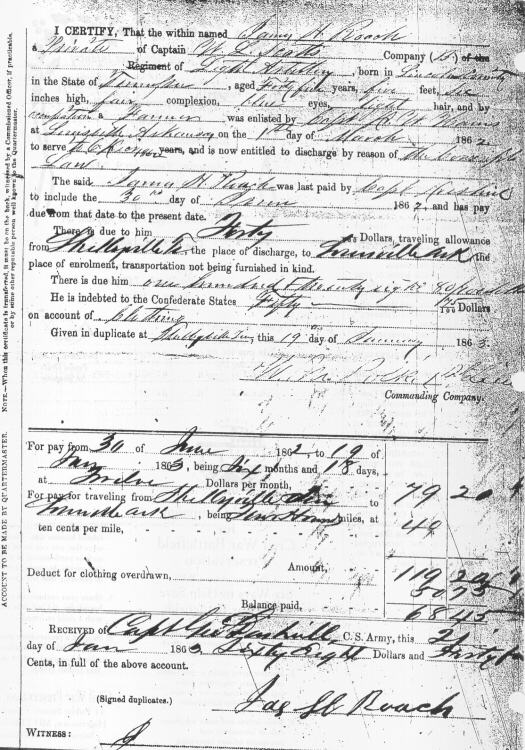 NOTE.—When this certificate is transferred, it must be on the back, witnessed by a Commissioned Officer, if practicable,
or by some other reputable person well known to the Quartermaster.
ACCOUNT TO BE MADE BY QUARTERMASTER.
I CERTIFY, That the within named James H Roach
a Private of Captain W. L. Scotts Company (B.) of the
Regiment of Light Artillery, born in Lincoln County
in the State of Tennessee, aged Forty five years, five feet, six
inches high, fair complexion, blue eyes, light hair, and by
occupation a Farmer was enlisted by Capt
at Arkansas on the 1st day of March 1862
to serve years, and is now entitled to discharge by reason of the Conscript
Law
The said James H Roach was last paid by Capt
to include the 30th day of June 1862, and has pay
due from that date to the present date.
There is due to him Forty Dollars, traveling allowance
from Shelbyville Te, the place of discharge, to Ark, the
place of enrolment, transportation not being furnished in kind.
There is due him one hundred &
He is indebted to the Confederate States Fifty 75/100 Dollars
on account of clothing
Given in duplicate at Shelbyville Ten, this 19 day of January 1863.
Commanding Company.
For pay from 30 of June 1862, to 19 of
Jany 1863, being Six months and 18 days,
at Twelve Dollars per month, 79 20
For pay for traveling from Shelbyville Tenn to
Ark, being Four Hund miles, at
ten cents per mile, 40
Amount, 119 20
Deduct for clothing overdrawn, 50 75
Balance paid, 68 45
RECEIVED OF Capt C. S. Army, this 21
day of Jan 1863, Sixty Eight Dollars and Forty five
Cents, in full of the above account.
(Signed duplicates.) Jas H Roach
WITNESS: